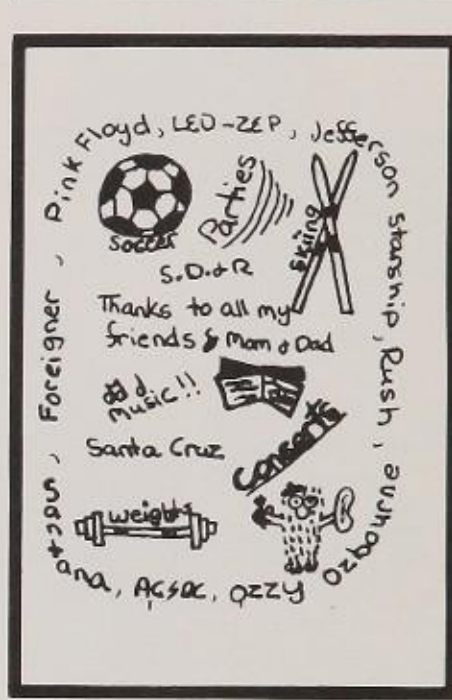 Pink Floyd, LED-ZEP, Jefferson Starship, Rush, Ozbourne
Ozzy, AC/DC, Santana, Foreigner,
Soccer
Parties
Skiing
S.D.&R
Thanks to all my
friends & Mom & Dad
music!!
Santa Cruz
Concerts
weights